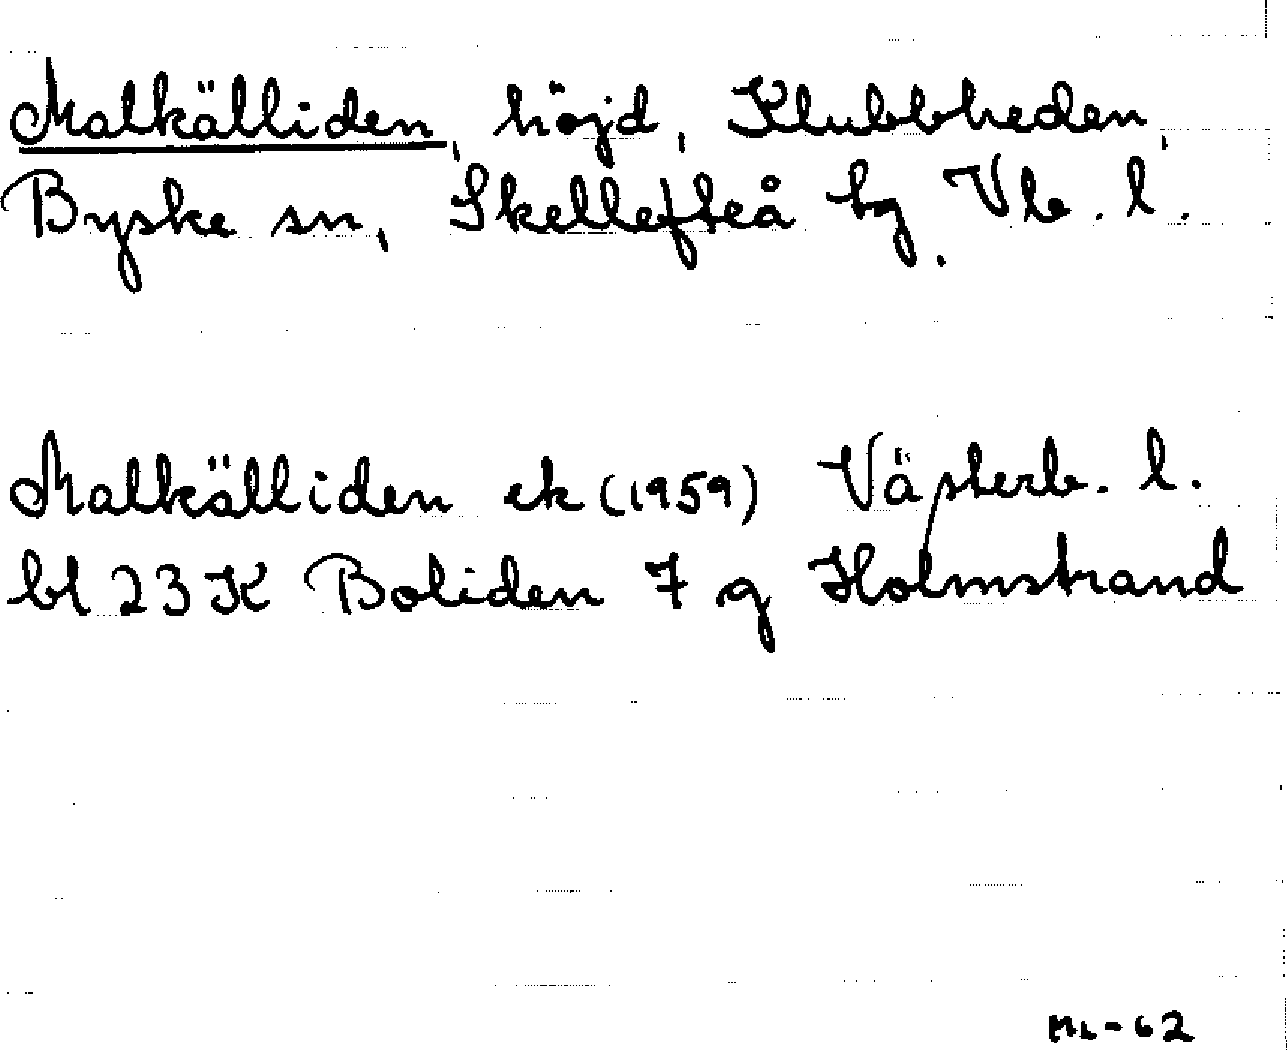 Malkälliden, höjd, Klubbheden,
Byske sn, Skellefteå tg. Vb. l.
Malkälliden ek (1959) Västerb. l.
bl 23 K Boliden 7 g Holmstrand
ML-62